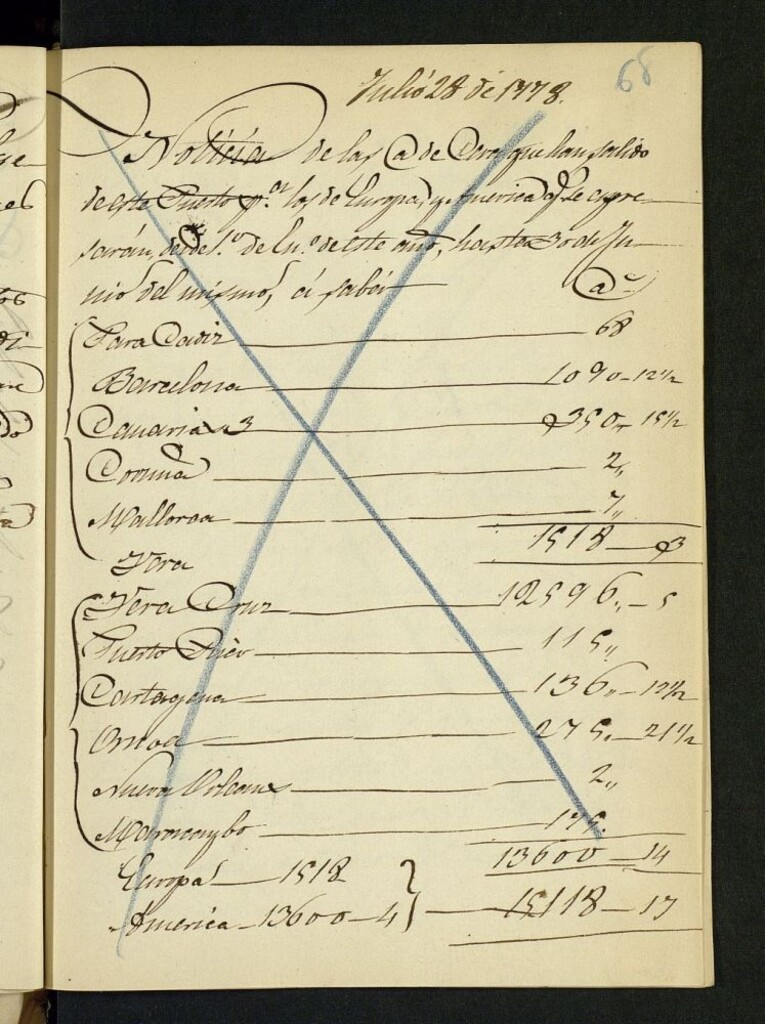 68
Julio 28 de 1778.
Noticia de las @ de Cera que han salido
de este Puerto p.ª los de Europa, y America q.e se expre
sarán, desde 1.º de En.º de este año, hasta 30 de Ju
nio del mismo, á saber
@s
Para Cadiz 68
Barcelona 1090-12½
Canarias 350,,-15½
Coruña 2,,
Mallorca 7,,
1518-3
Vera
Vera Cruz 12896,,-5
Puerto Rico 115,,
Cartagena 136,,-12½
Omoa 275,,-21½
Nueva Orleans 2,,
Maracaybo 175.
13600-14
Europa 1518
America 13600-4 15118-17